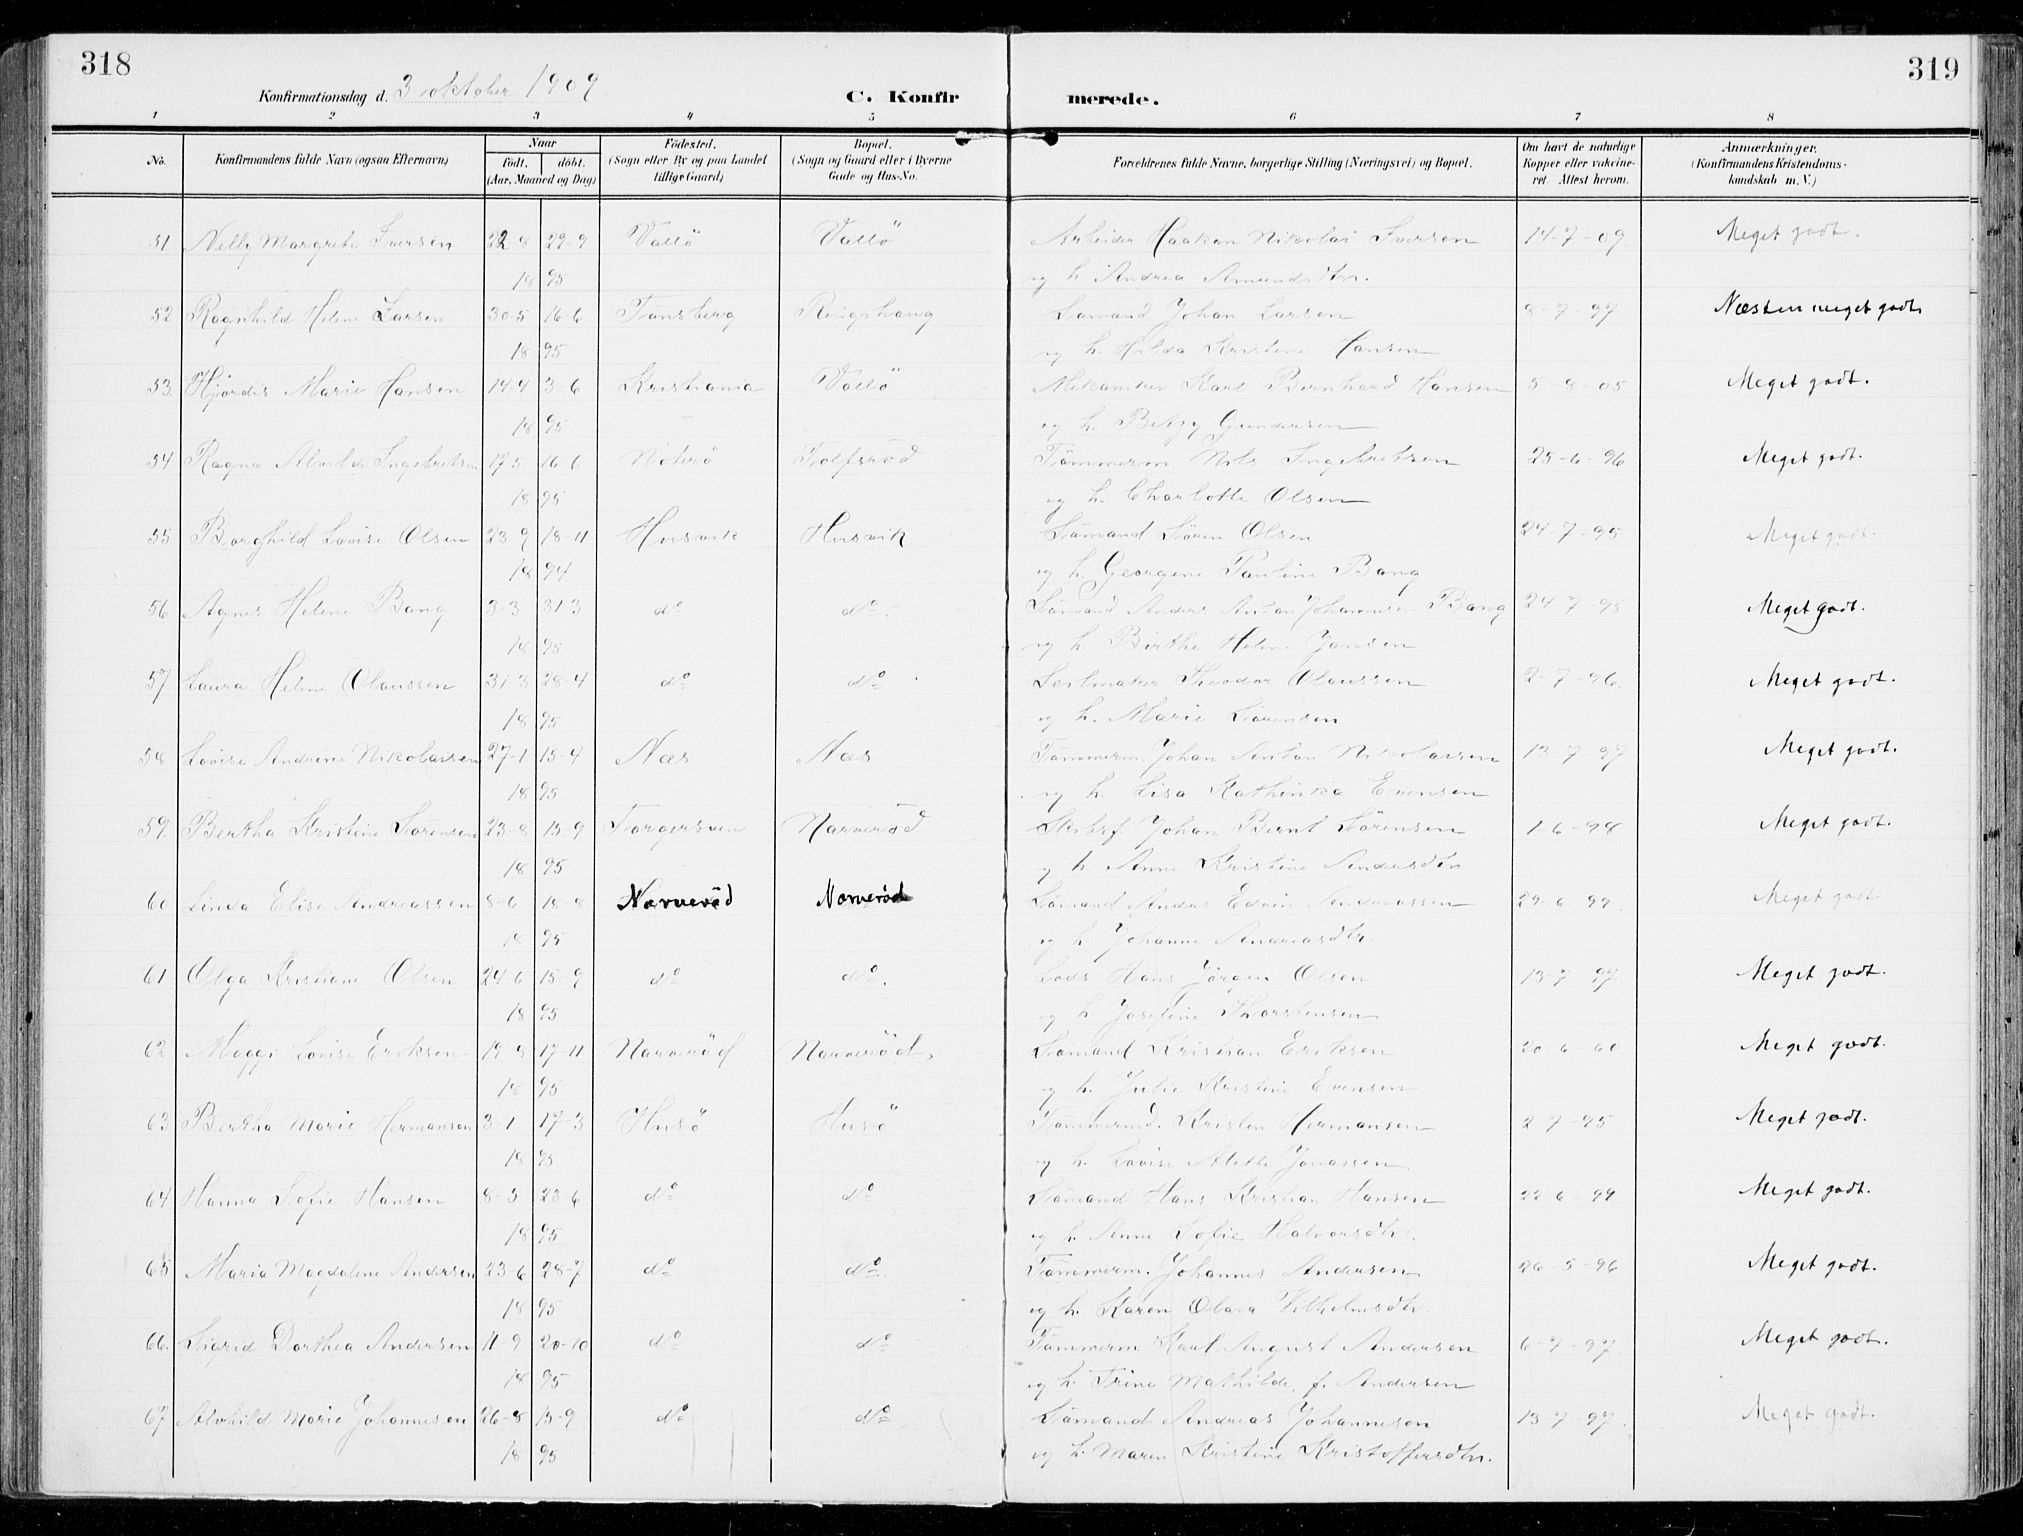 318
319
Konfirmationsdag d. 3 oktober 1909
C. Konfir merede.
1 2 3 4 5 6 7 8
No.
Konfirmandens fulde Navn (ogsaa Efternavn)
Naar
födt. döbt.
(Aar, Maaned og Dag)
Födested.
(Sogn eller By og paa Landet
tillige Gaard)
Bopæl.
(Sogn og Gaard eller i Byerne
Gade og Hus-No.
Forældrenes fulde Navne, borgerlige Stilling (Næringsvei) og Bopæl.
Om havt de naturlige
Kopper eller vakcine-
ret. Attest herom.
Anmærkninger.
(Konfirmandens Kristendoms-
kundskab m. V.)
51 Nelly Margrete Iversen 22-8 29-9 Vallö Vallö Arbeider Haakon Nikolai Iversen 14-7-09 Meget godt.
18 95 og h. Andrea Amundsdtr.
52 Ragnhild Helene Larsen 30-5 16-6 Tönsberg Ringshaug Sömand Johan Larsen 8-7-97 Næsten meget godt.
18 95 og h. Hilda Kristine Hansen
53. Hjördis Marie Hansen 14-4 3-6 Kristiania Vallö Mekaniker Karl Bernhard Hansen 5-8-05 Meget godt.
18 95 og h. Betzy Gundersen
54 Ragna Alvilde Ingebretsen 17-5 16-6 Nöterö Tolfsröd Tömmerm. Nils Ingebretsen 25-6-96 Meget godt.
18 95 og h. Charlotte Olsen
55 Borghild Lovise Olsen 23-9 18-11 Husvik Husvik Sömand Sören Olsen 24-7-95 Meget godt.
18 94 og h. Georgine Pauline Bang
56 Agnes Helene Bang 3-3 31-3 do do Sömand Anders Anton Johannesen Bang 24-7-95 Meget godt.
18 95 og h. Birthe Helene Jansen
57 Laura Helene Olaussen 31-3 28-4 do do Seilmaker Theodor Olaussen 2-7-96 Meget godt.
18 95 og h. Marie Sörensen
58 Lovise Andrine Nikolaisen 27-1 15-4 Næs Næs Tömmerm. Johan Anton Nikolaisen 13-7-97 Meget godt.
18 95 og h. Lisa Kathinka Evensen
59. Bertha Kristine Sörensen 23-8 15-9 Torgersøen Narveröd Skibsf. Johan Bernt Sörensen 1-6-98 Meget godt.
18 95 og h. Anne Kristine Andersdtr
60 Linda Elise Andreassen 8-6 18-8 Narveröd Narveröd Sömand Anders Edvin Andreassen 29-6-99 Meget godt
18 95 og h. Johanne Andreasdtr.
61 Olga Kristiane Olsen 24-6 15-9 do do. Lods Hans Jörgen Olsen 13-7-97 Meget godt.
18 95 og h. Josefine Thorstensen
62 Maggi Lovise Eriksen 19-8 17-11 Narveröd Narveröd Sömand Kristian Eriksen 20-6-00 Meget godt.
18 95 og h. Julie Kristine Evensen
63 Bertha Marie Hermansen 3-1 17-3 Husö Husö Tömmermd. Kristen Hermansen 2-7-95 Meget godt.
18 95 og h. Lovise Alette Jonassen
64 Hanna Sofie Hansen 8-5 23-6 do do Sömand Hans Kristian Hansen 22-6-99 Meget godt.
18 95 og h. Anne Sofie Halvorsdtr.
65 Maria Magdalene Andersen 23-6 28-7 do do. Tömmerm. Johannes Andersen 26-5-96 Meget godt.
18 95 og h. Karen Olava Vilhelmsdtr
66. Sigrid Dorthea Andersen 11-9 20-10 do do Tömmerm Karl August Andersen 6-7-97 Meget godt.
18 95 og h. Trine Mathilde, f. Andersen
67 Alvhild Marie Johannesen 26-8 15-9 do do Sömand Andreas Johannesen 13-7-97 Meget godt.
18 95 og h. Maren Kristine Kristoffersdtr.